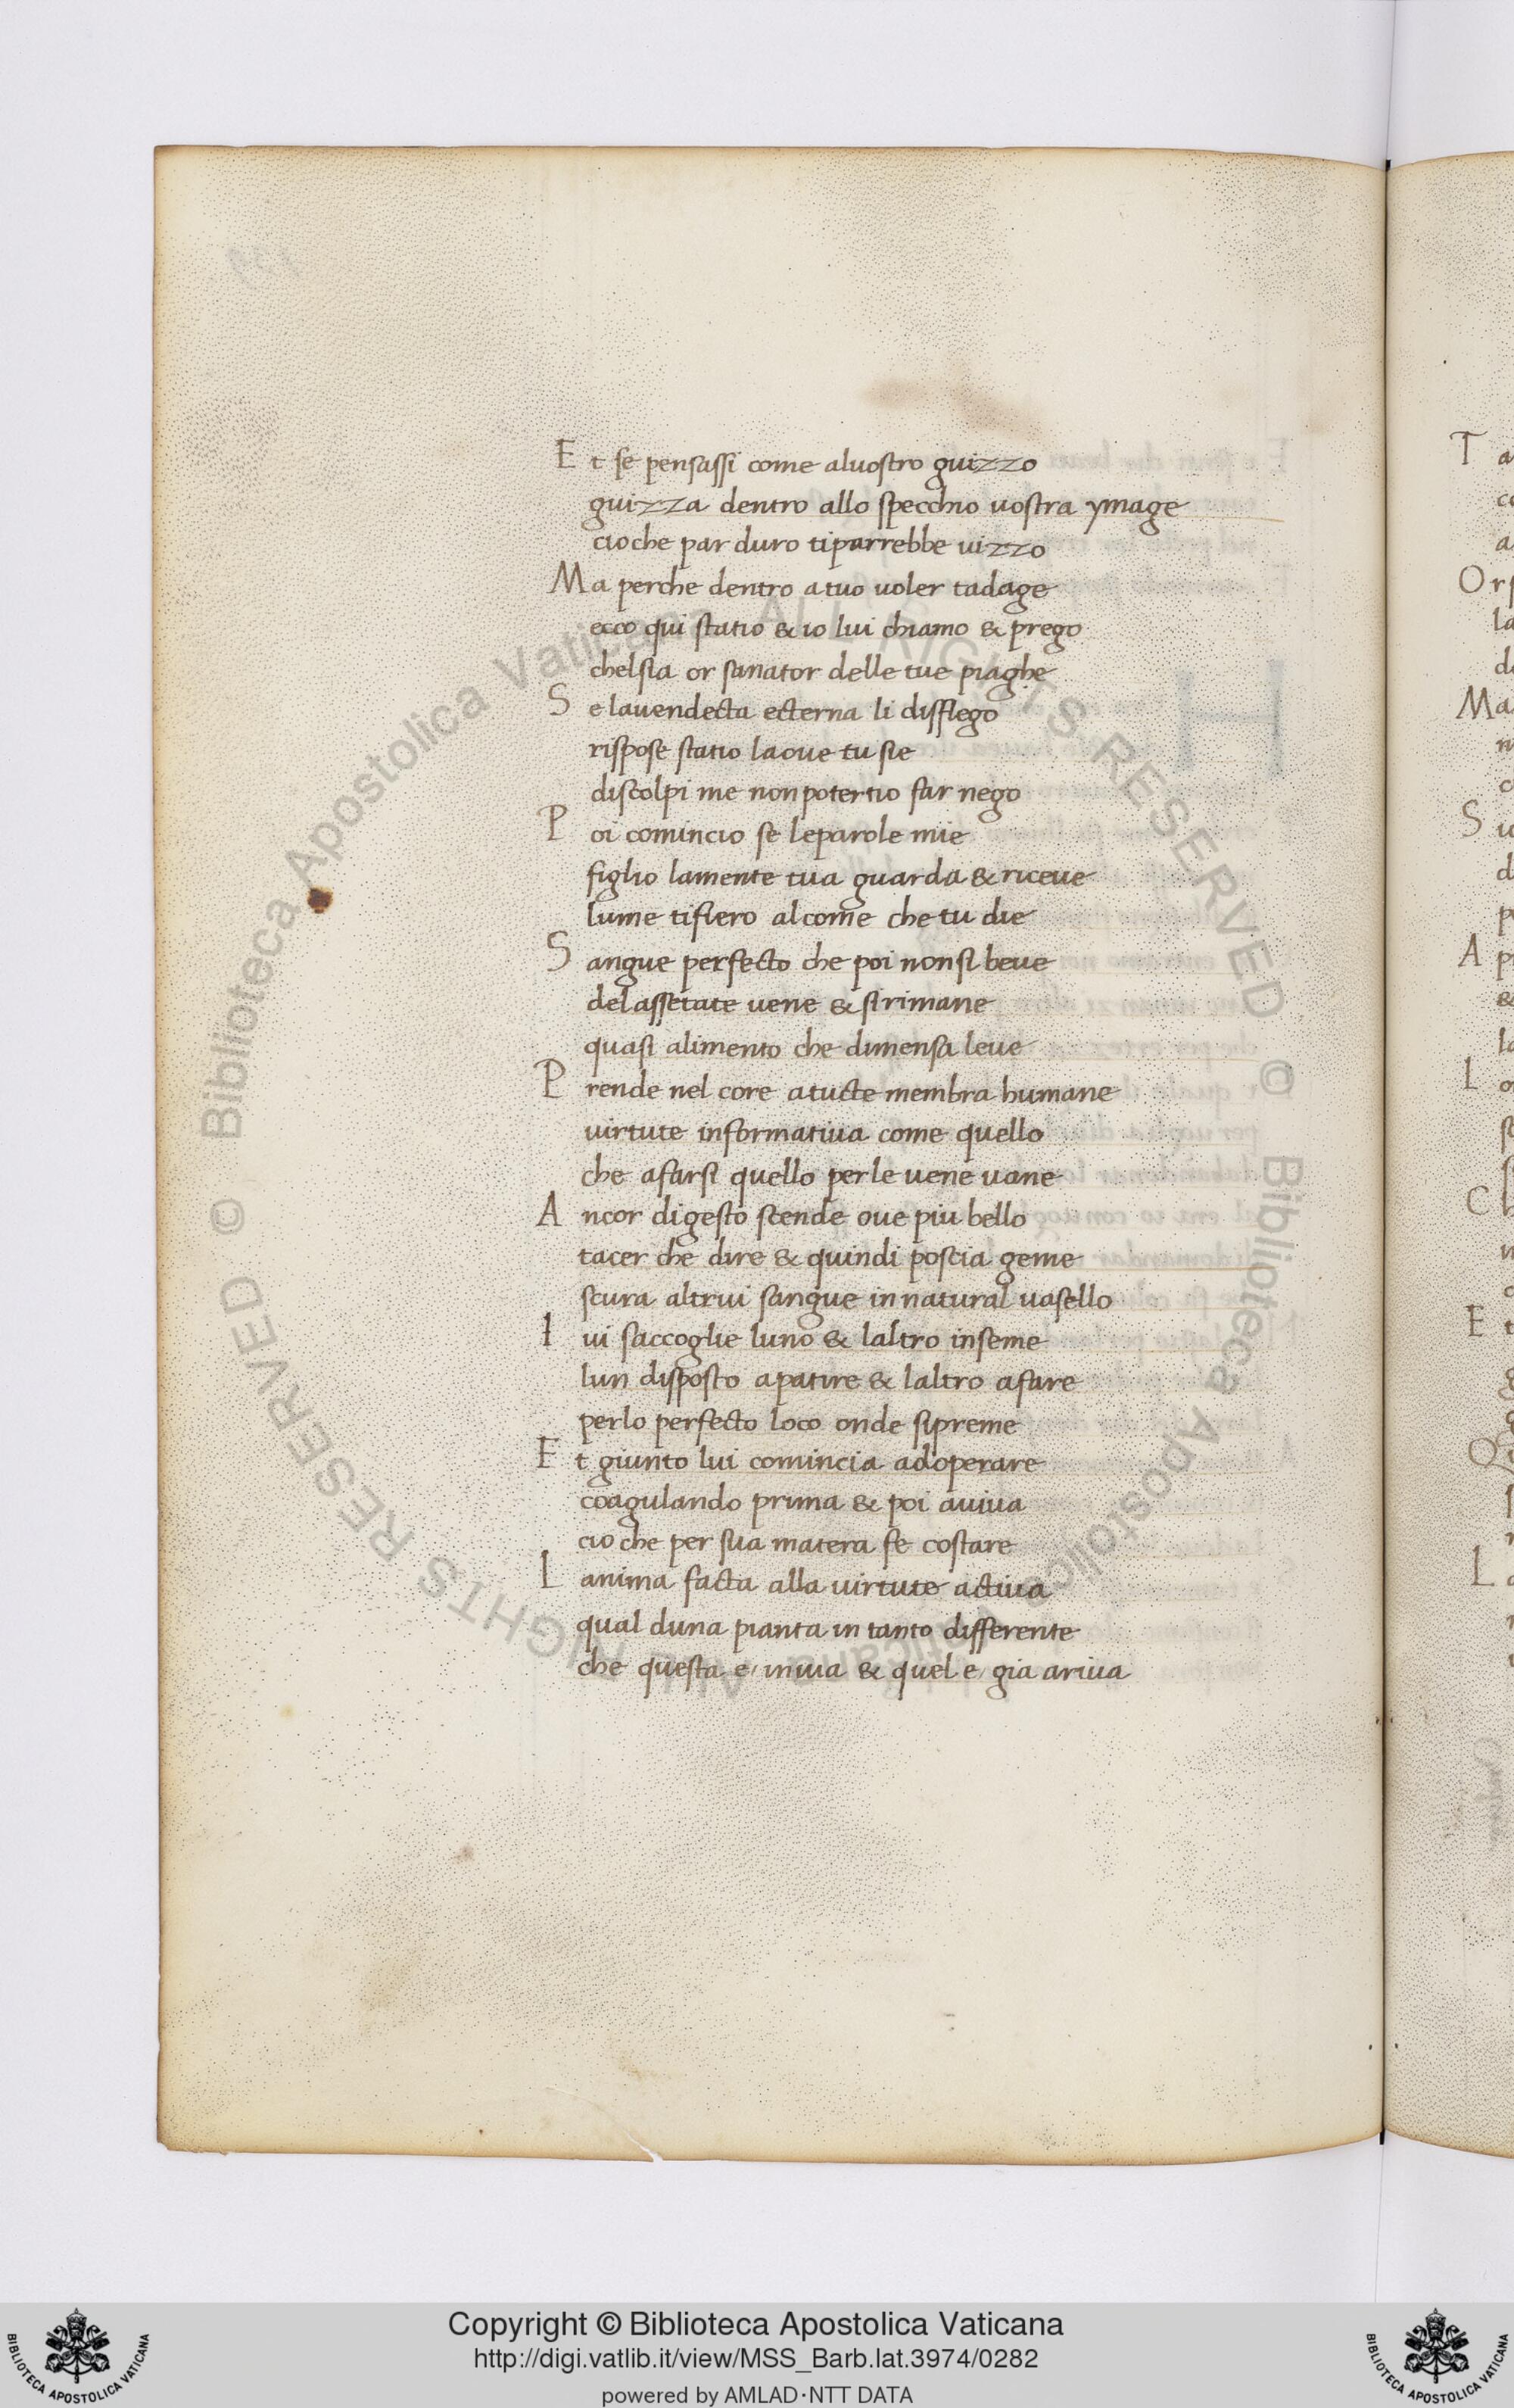 Et se pensassi come aluostro guizzo
guizza dentro allo specchio uostra ymage
cioche par duro tiparrebbe uizzo
Ma perche dentro atuo uoler tadage
ecco qui statio & io lui chiamo & prego
chelsia or sanator delle tue piaghe
Se lauendecta ecterna li disslego
rispose statio laoue tu sie
discolpi me nonpotertio far nego
Poi comincio se leparole mie
figlio lamente tua guarda & riceue
lume tifiero alcome che tu die
Sangue perfecto che poi nonsi beue
delassetate uene & sirimane
quasi alimento che dimensa leue
Prende nel core atucte membra humane
uirtute informatiua come quello
che afarsi quello perle uene uane
Ancor digesto scende oue piu bello
tacer che dire & quindi poscia geme
scura altrui sangue innatural uasello
Iui saccoglie luno & laltro inseme
lun disposto apatire & laltro afare
perlo perfecto loco onde sipreme
Et giunto lui comincia adoperare
coagulando prima & poi auiua
cio che per sua matera fe costare
Lanima facta alla uirtute actiua
qual duna pianta in tanto differente
che questa e/ inuia & quel e/ gia ariua
Copyright © Biblioteca Apostolica Vaticana
http://digi.vatlib.it/view/MSS_Barb.lat.3974/0282
powered by AMLAD·NTT DATA